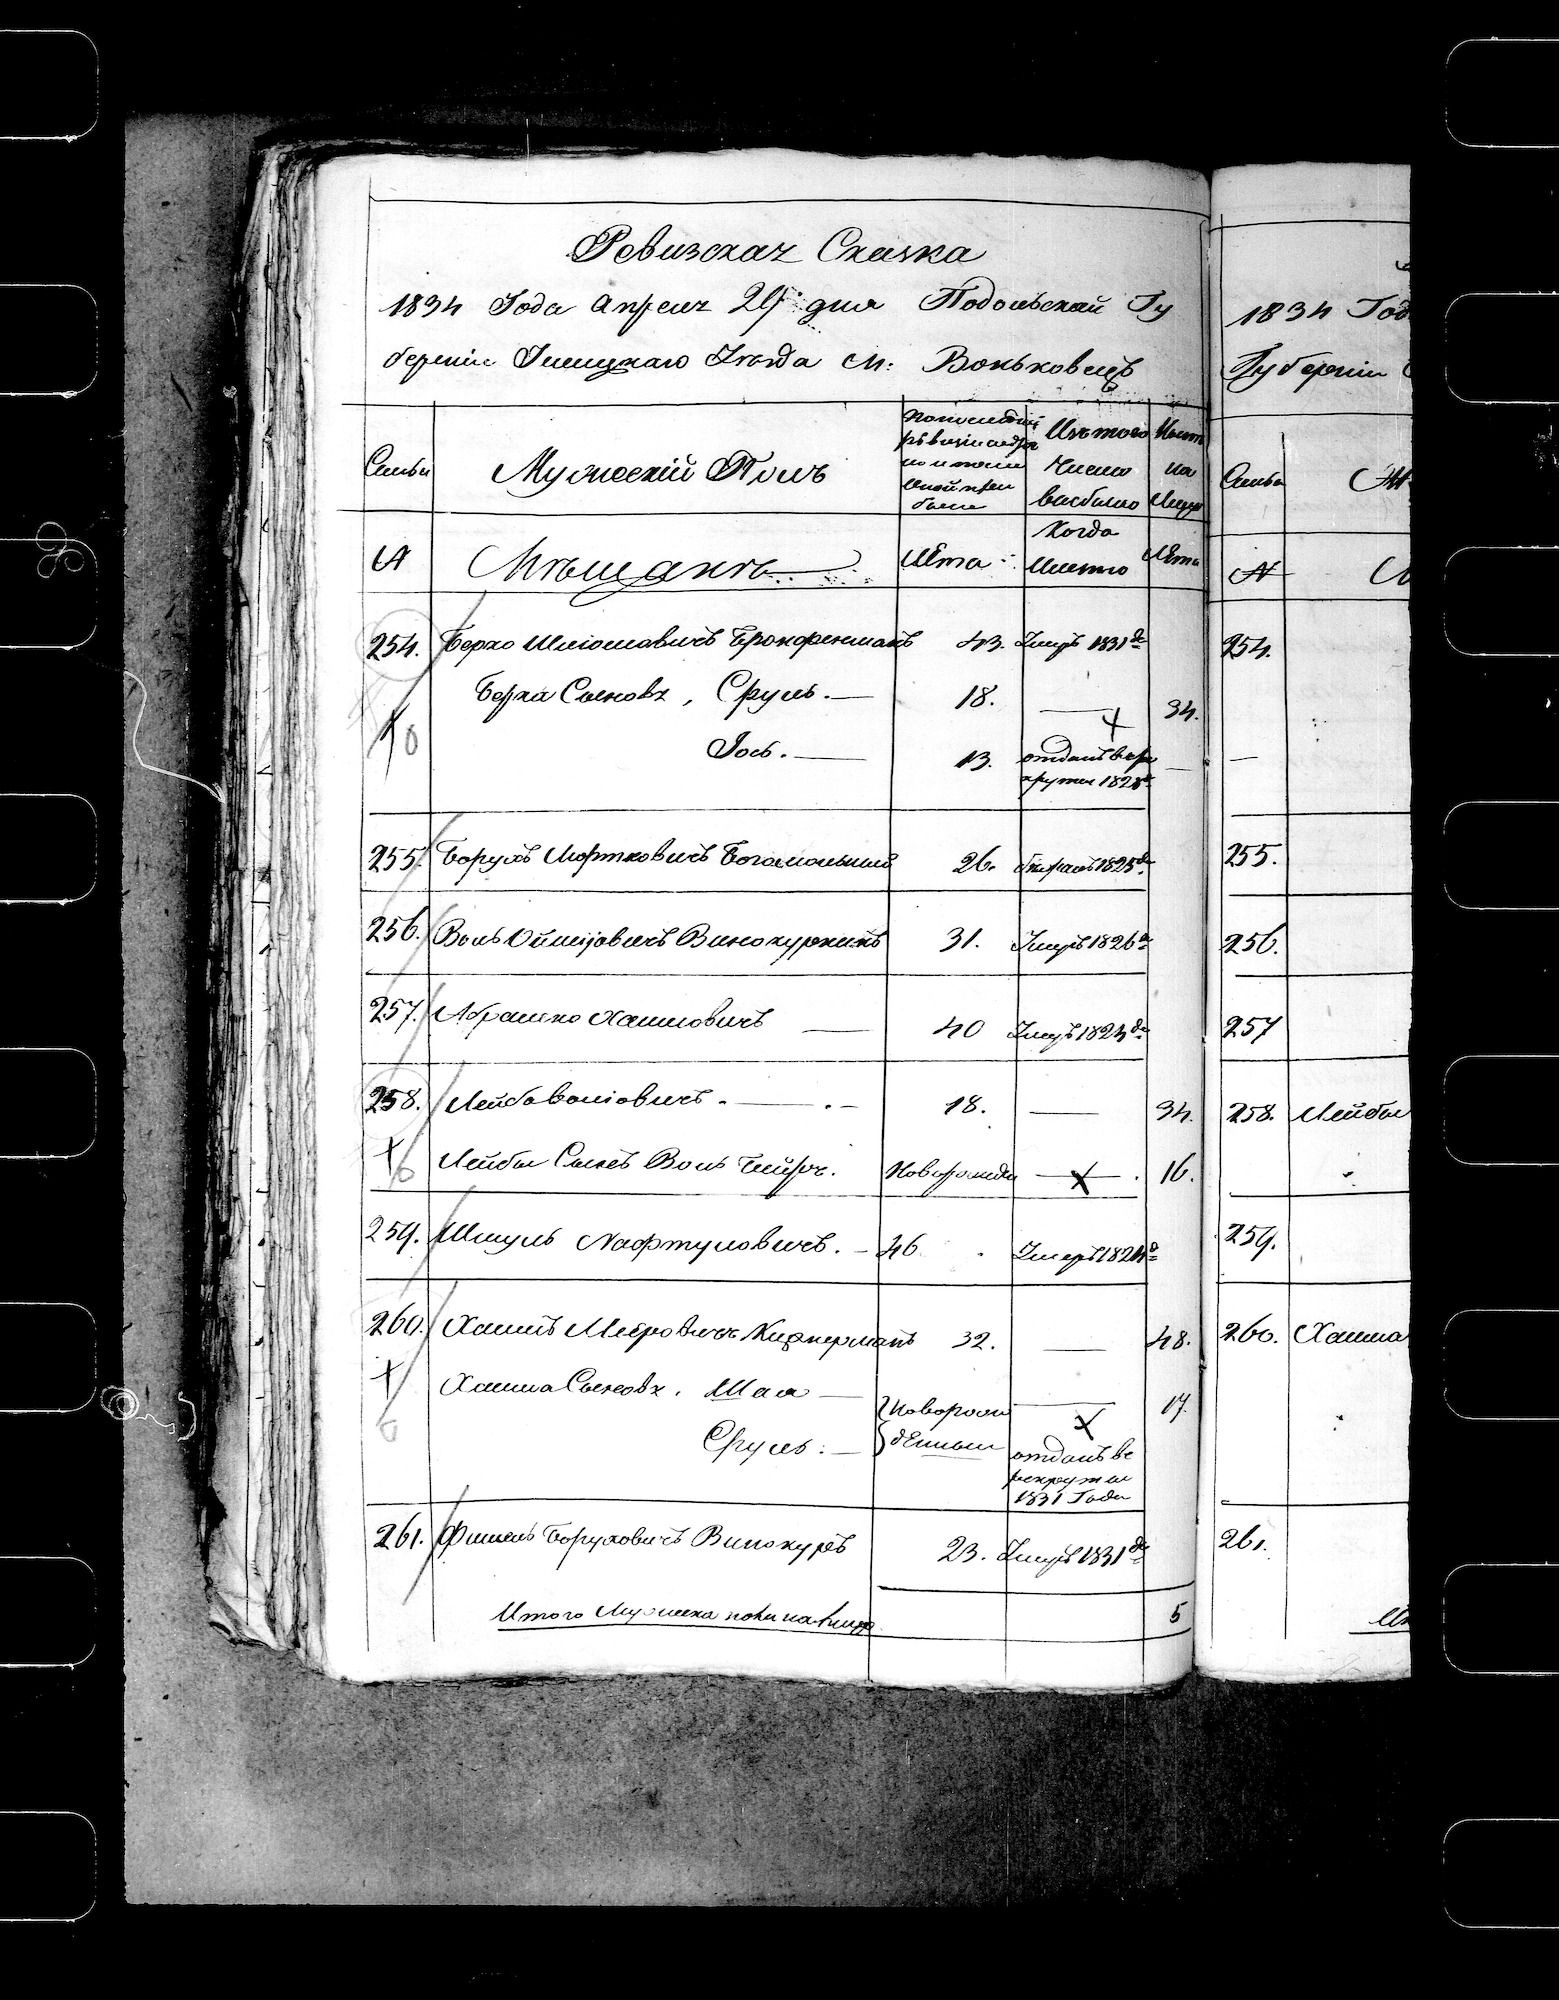 Ревизская Сказка
1834 Года Апреля 29 дня Подольской Гу
берніи Ушицкаго Уезда М: Воньковецъ
Семьи
Мужескій Полъ
По последней
ревизіи
Изъ того
Числа
выбыло
Ныне
на
Лицо
№
Мещане
Лета
Когда
Именно
Лета
254. Берко Шлiомовичъ Бронфенманъ 43. Умеръ 1831го
Берка Сыновя, Сруль. — 18. — 34.
Іось. — 13. отданъ в ре
круты 1828го —
255. Борухъ Мортковичъ Богомольный 26. 1825го
256. Воль Винокурникъ 31. Умеръ 1826го
257. Абрамко Хаимовичъ — 40 Умеръ 1824го
258. Лейба Воліовичъ. — 18. — 34.
Лейбы Сынъ Воль Бейрз. Новорожде — 16.
259. Шмуль Нафтуловичъ. — 46 Умеръ 1824го
260. Хаимъ Меeровичъ 32. — 48.
Хаима Сыновя. Шая — Новорож — 17.
Сруль. — денныи отданъ в
рекруты
1831 Года
261. Фишель Боруховичъ Винокуръ 23. Умеръ 1831го
Итого Мужеска пола на лицо 5
1834 Год
Губерніи
Семьи
№
254.
—
255.
256.
257
258. Лейбы
259.
260. Хаима
261.